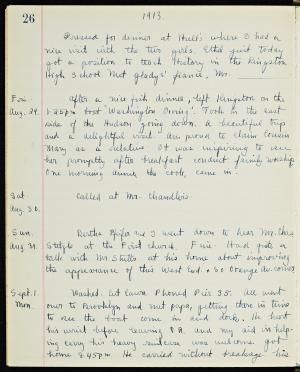 26
1913.
Pressed for dinner at Hull's where I had a
nice visit with the two girls. Ethel just today
got a position to teach History in the Kingston
High School. Met Gladys' fiance, Mr.
Fri. Aug. 29. After a nice fish dinner, left Kingston on the
1.25pm boat "Washington Irving". Took in the east
side of the Hudson going down. A beautiful trip
and a delightful visit. Am proud to claim cousin
Mary as a relative. It was inspiring to see
her promptly after breakfast conduct family worship.
One morning dinner the cook, came in.
Sat. Aug. 30. Called at Mrs. Chandlers.
Sun. Aug. 31. Bertha and I went down to hear Mr. Chas
at the First church. Fine. Had quite a
talk with Mr. Stitts at his home about improving
the appearance of this West End + So Orange Av. corner
Sept. 1 Mon. Washed. Cut lawn. Phoned Pier 35. All went
over to Brooklyn and met papa, getting there in time
to see the boat come in and dock. He hurt
his wrist before leaving P.R. and my aid in help-
ing carry his heavy suitcase was welcome. Got
home 8.45pm. He carried without breakage his